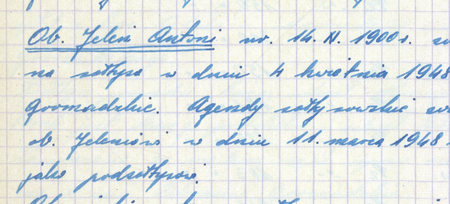 Ob. Jeleń Antoni ur. 14. II. 1900 r.
na sołtysa w dniu 4 kwietnia 1948
Gromadzkie. Agendy sołtysowskie
ob. Jeleniowi w dniu 11. marca 1948
jako podsołtysowi.